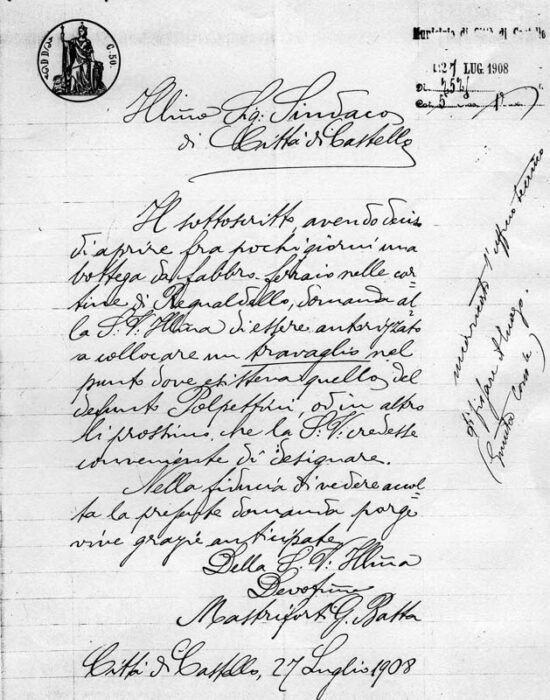 C. 50
Municipio di Città di Castello
27 LUG. 1908
Illmo Sig. Sindaco
di Città di Castello
Il sottoscritto, avendo deciso
di aprire fra pochi giorni una
bottega da fabbro-ferraio nelle cor-
tine di Regnaldello, domanda al-
la S. V. Illma di essere autorizzato
a collocare un travaglio nel
punto dove esisteva quello del
defunto Polpettini, od in altro
li prossimo, che la S. V. credesse
conveniente di designare.
Nella fiducia di vedere accol-
ta la presente domanda porge
vive grazie anticipate
Della S. V. Illma
Devotissimo
Mastriforti G. Batta
Città di Castello, 27 Luglio 1908
incaricato l'ufficio tecnico
di fissare il luogo.